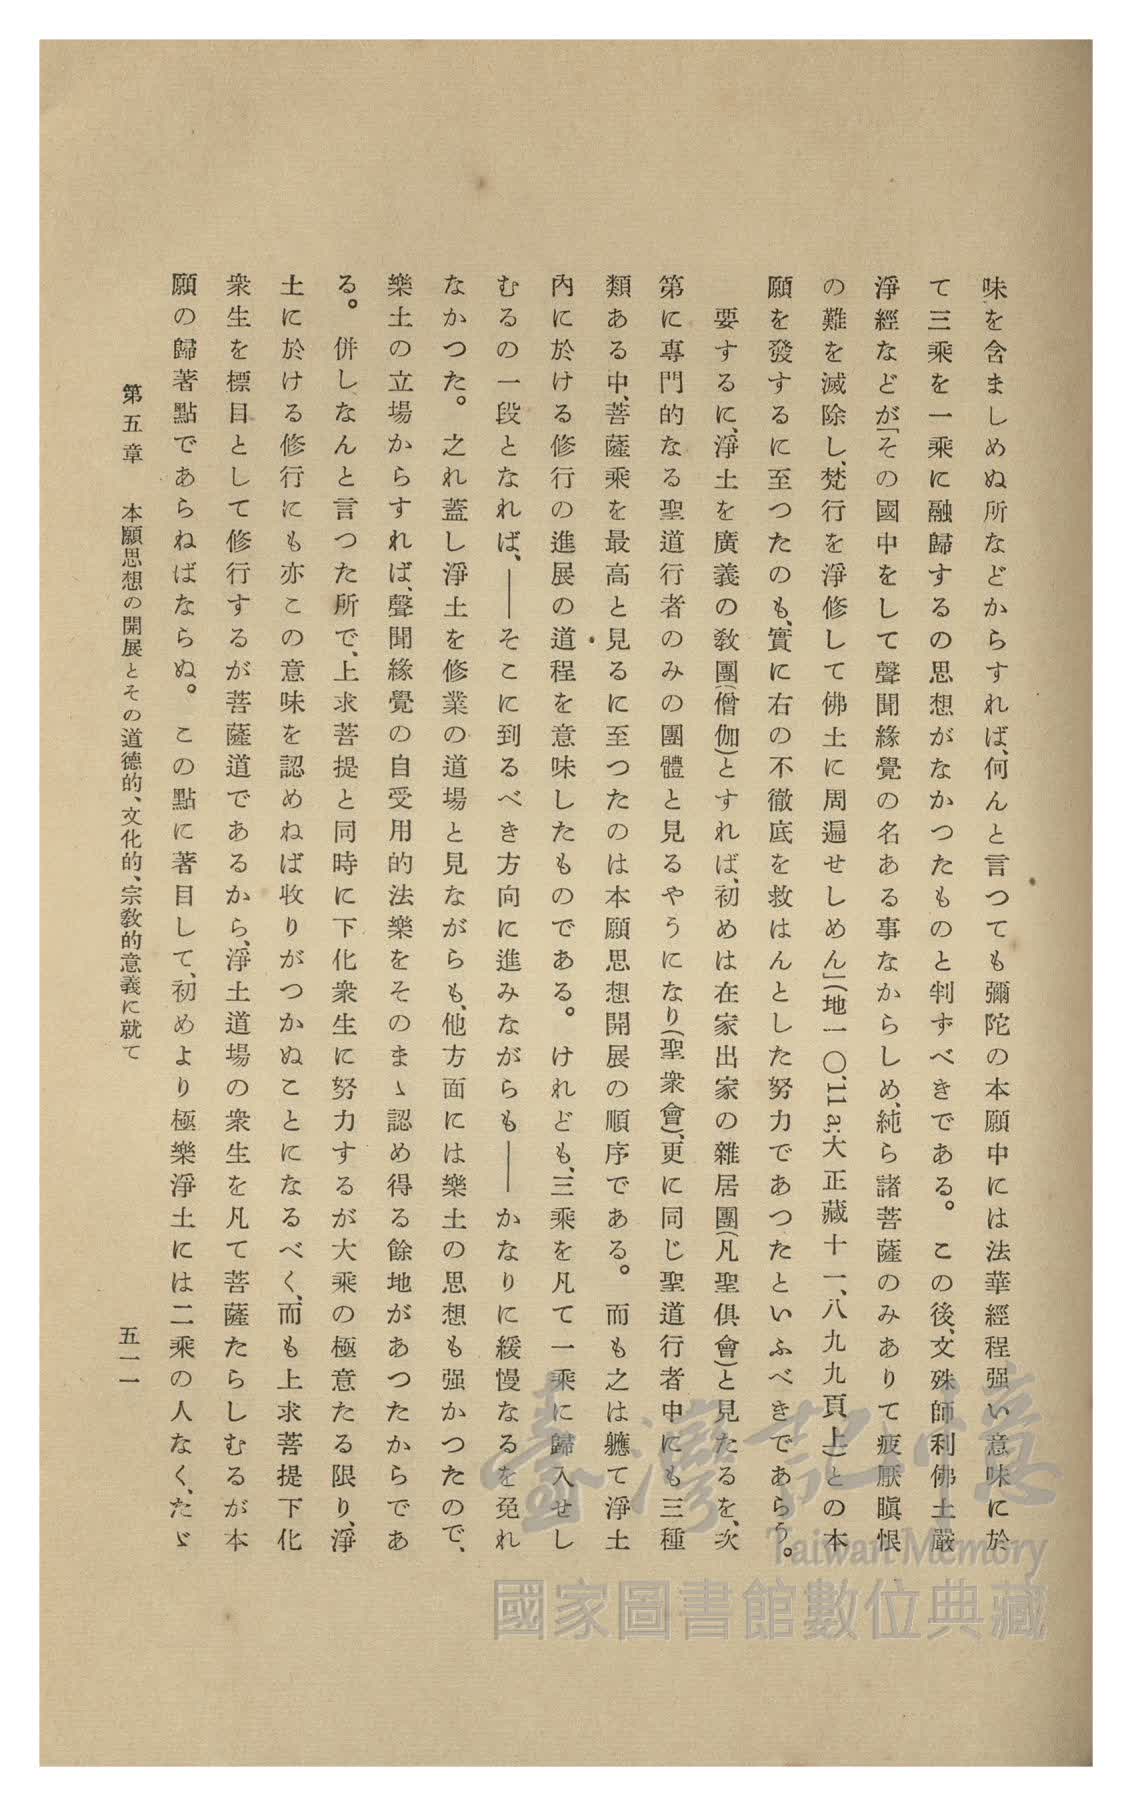 味を含ましめぬ所などからすれば、何んと言つても彌陀の本願中には法華經程强い意味に於
て三乘を一乘に融歸するの思想がなかつたものと判ずべきである。この後、文殊師利佛土嚴
淨經などが「その國中をして聲聞緣覺の名ある事なからしめ、純ら諸菩薩のみありて疲厭瞋恨
の難を滅除し、梵行を淨修して佛土に周遍せしめん」(地一〇、11 a; 大正藏十一、八九九頁上)との本
願を發するに至つたのも、實に右の不徹底を救はんとした努力であつたといふべきであらう。
要するに、淨土を廣義の敎團(僧伽)とすれば、初めは在家出家の雜居團(凡聖俱會)と見たるを、次
第に專門的なる聖道行者のみの團體と見るやうになり(聖衆會)、更に同じ聖道行者中にも三種
類ある中、菩薩乘を最高と見るに至つたのは本願思想開展の順序である。而も之は軈て淨土
內に於ける修行の進展の道程を意味したものである。けれども、三乘を凡て一乘に歸入せし
むるの一段となれば、――そこに到るべき方向に進みながらも――かなりに緩慢なるを免れ
なかつた。之れ蓋し淨土を修業の道場と見ながらも、他方面には樂土の思想も强かつたので、
樂土の立場からすれば、聲聞緣覺の自受用的法樂をそのまゝ認め得る餘地があつたからであ
る。併しなんと言つた所で、上求菩提と同時に下化衆生に努力するが大乘の極意たる限り、淨
土に於ける修行にも亦この意味を認めねば收りがつかぬことになるべく、而も上求菩提下化
衆生を標目として修行するが菩薩道であるから、淨土道場の衆生を凡て菩薩たらしむるが本
願の歸著點であらねばならぬ。この點に著目して、初めより極樂淨土には二乘の人なく、たゞ
第五章 本願思想の開展とその道德的、文化的、宗敎的意義に就て
五一一
臺灣記憶
Taiwan Memory
國家圖書館數位典藏